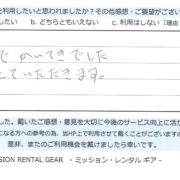 利用したいと思われましたか？その他感想・ご要望がござい
たい　b. どちらともいえない　c. 利用はしない（理由
で かいてきでした
ていただきます。
した。戴いたご感想・意見を大切に今後のサービス向上に活か
になる方への参考の為、当HP上で利用させて戴くことがございますの
是非、またのご利用機会を戴けましたら幸いです。
SION RENTAL GEAR - ミッション・レンタル ギア -